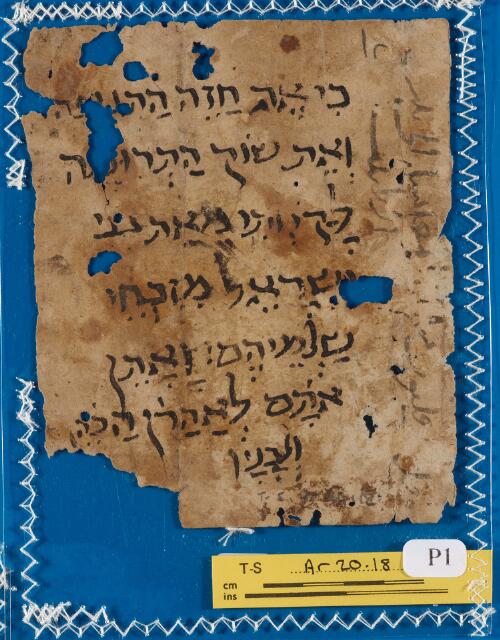 כי את חזה התנופה
ואת שוק התרומה
לקחתי מאת בני
ישראל מזבחי
שלמיהם ואתן
אתם לאהרן הכה
ולבניו
T-S Ar-20.18
P1
cm
ins